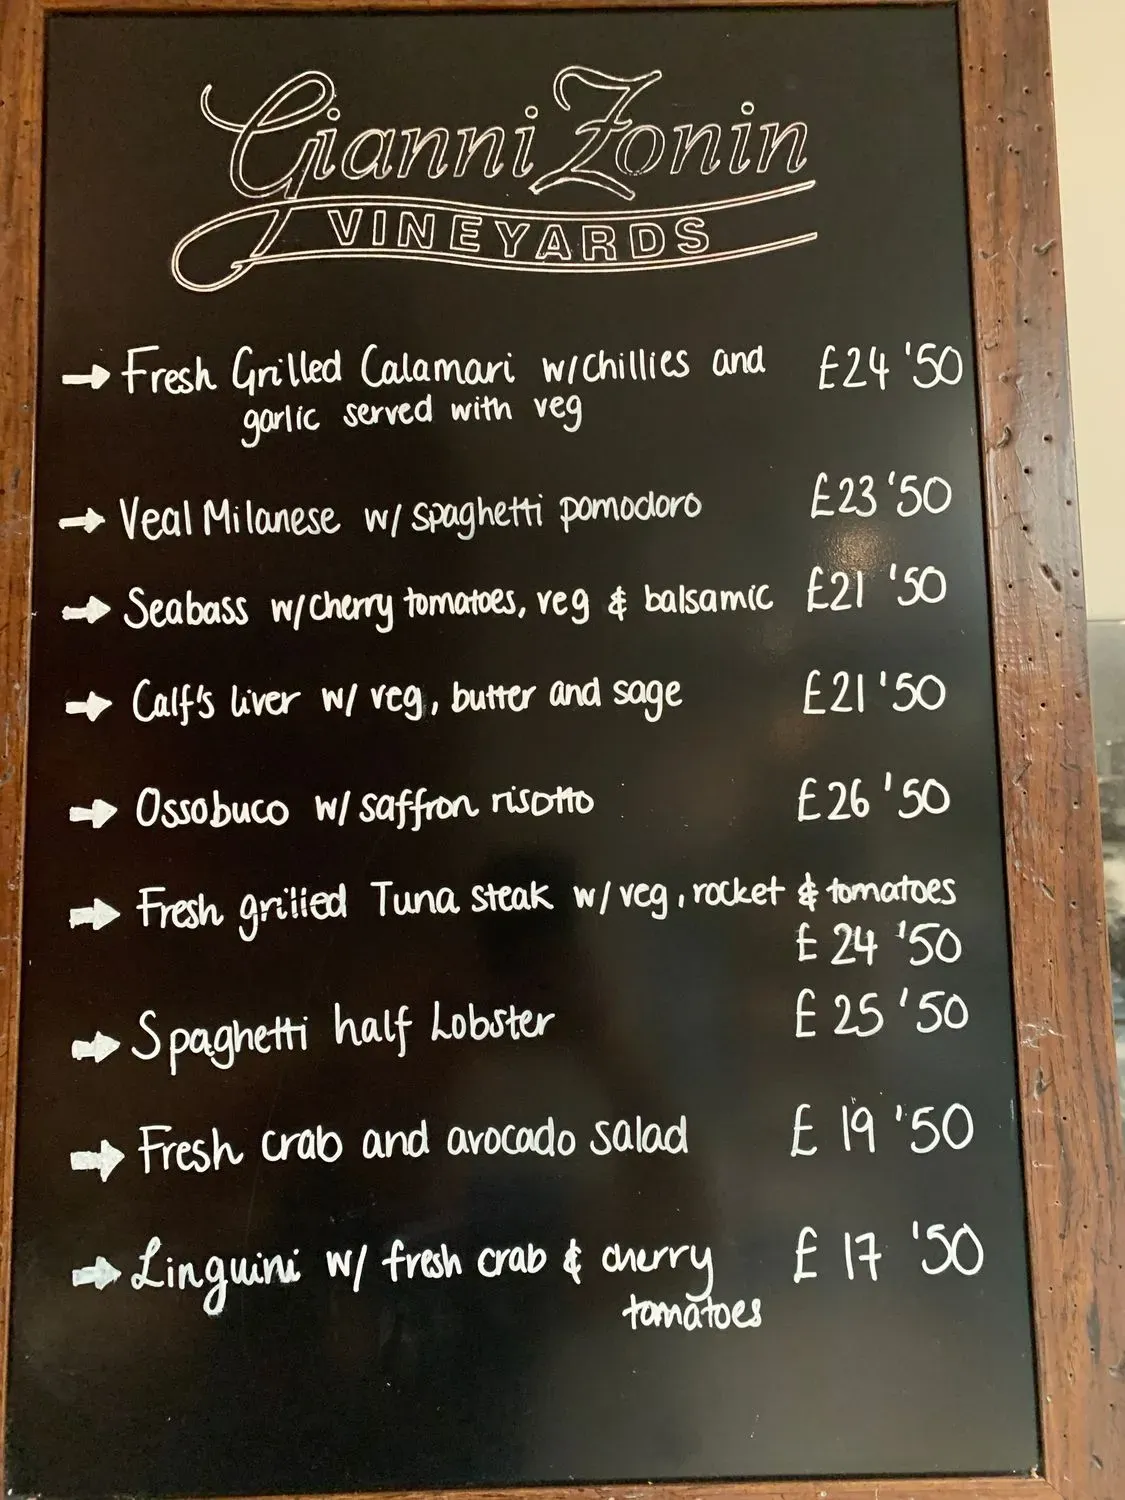 Gianni Zonin
VINEYARDS
→ Fresh Grilled Calamari w/chillies and £24 '50
garlic served with veg
→ Veal Milanese w/ spaghetti pomodoro £23 '50
→ Seabass w/cherry tomatoes, veg & balsamic £21 '50
→ Calf's liver w/ veg, butter and sage £21 '50
→ Ossobuco w/ saffron risotto £26 '50
→ Fresh grilled Tuna steak w/ veg, rocket & tomatoes
£ 24 '50
→ Spaghetti half Lobster £ 25 '50
→ Fresh crab and avocado salad £ 19 '50
→ Linguini w/ fresh crab & cherry £ 17 '50
tomatoes